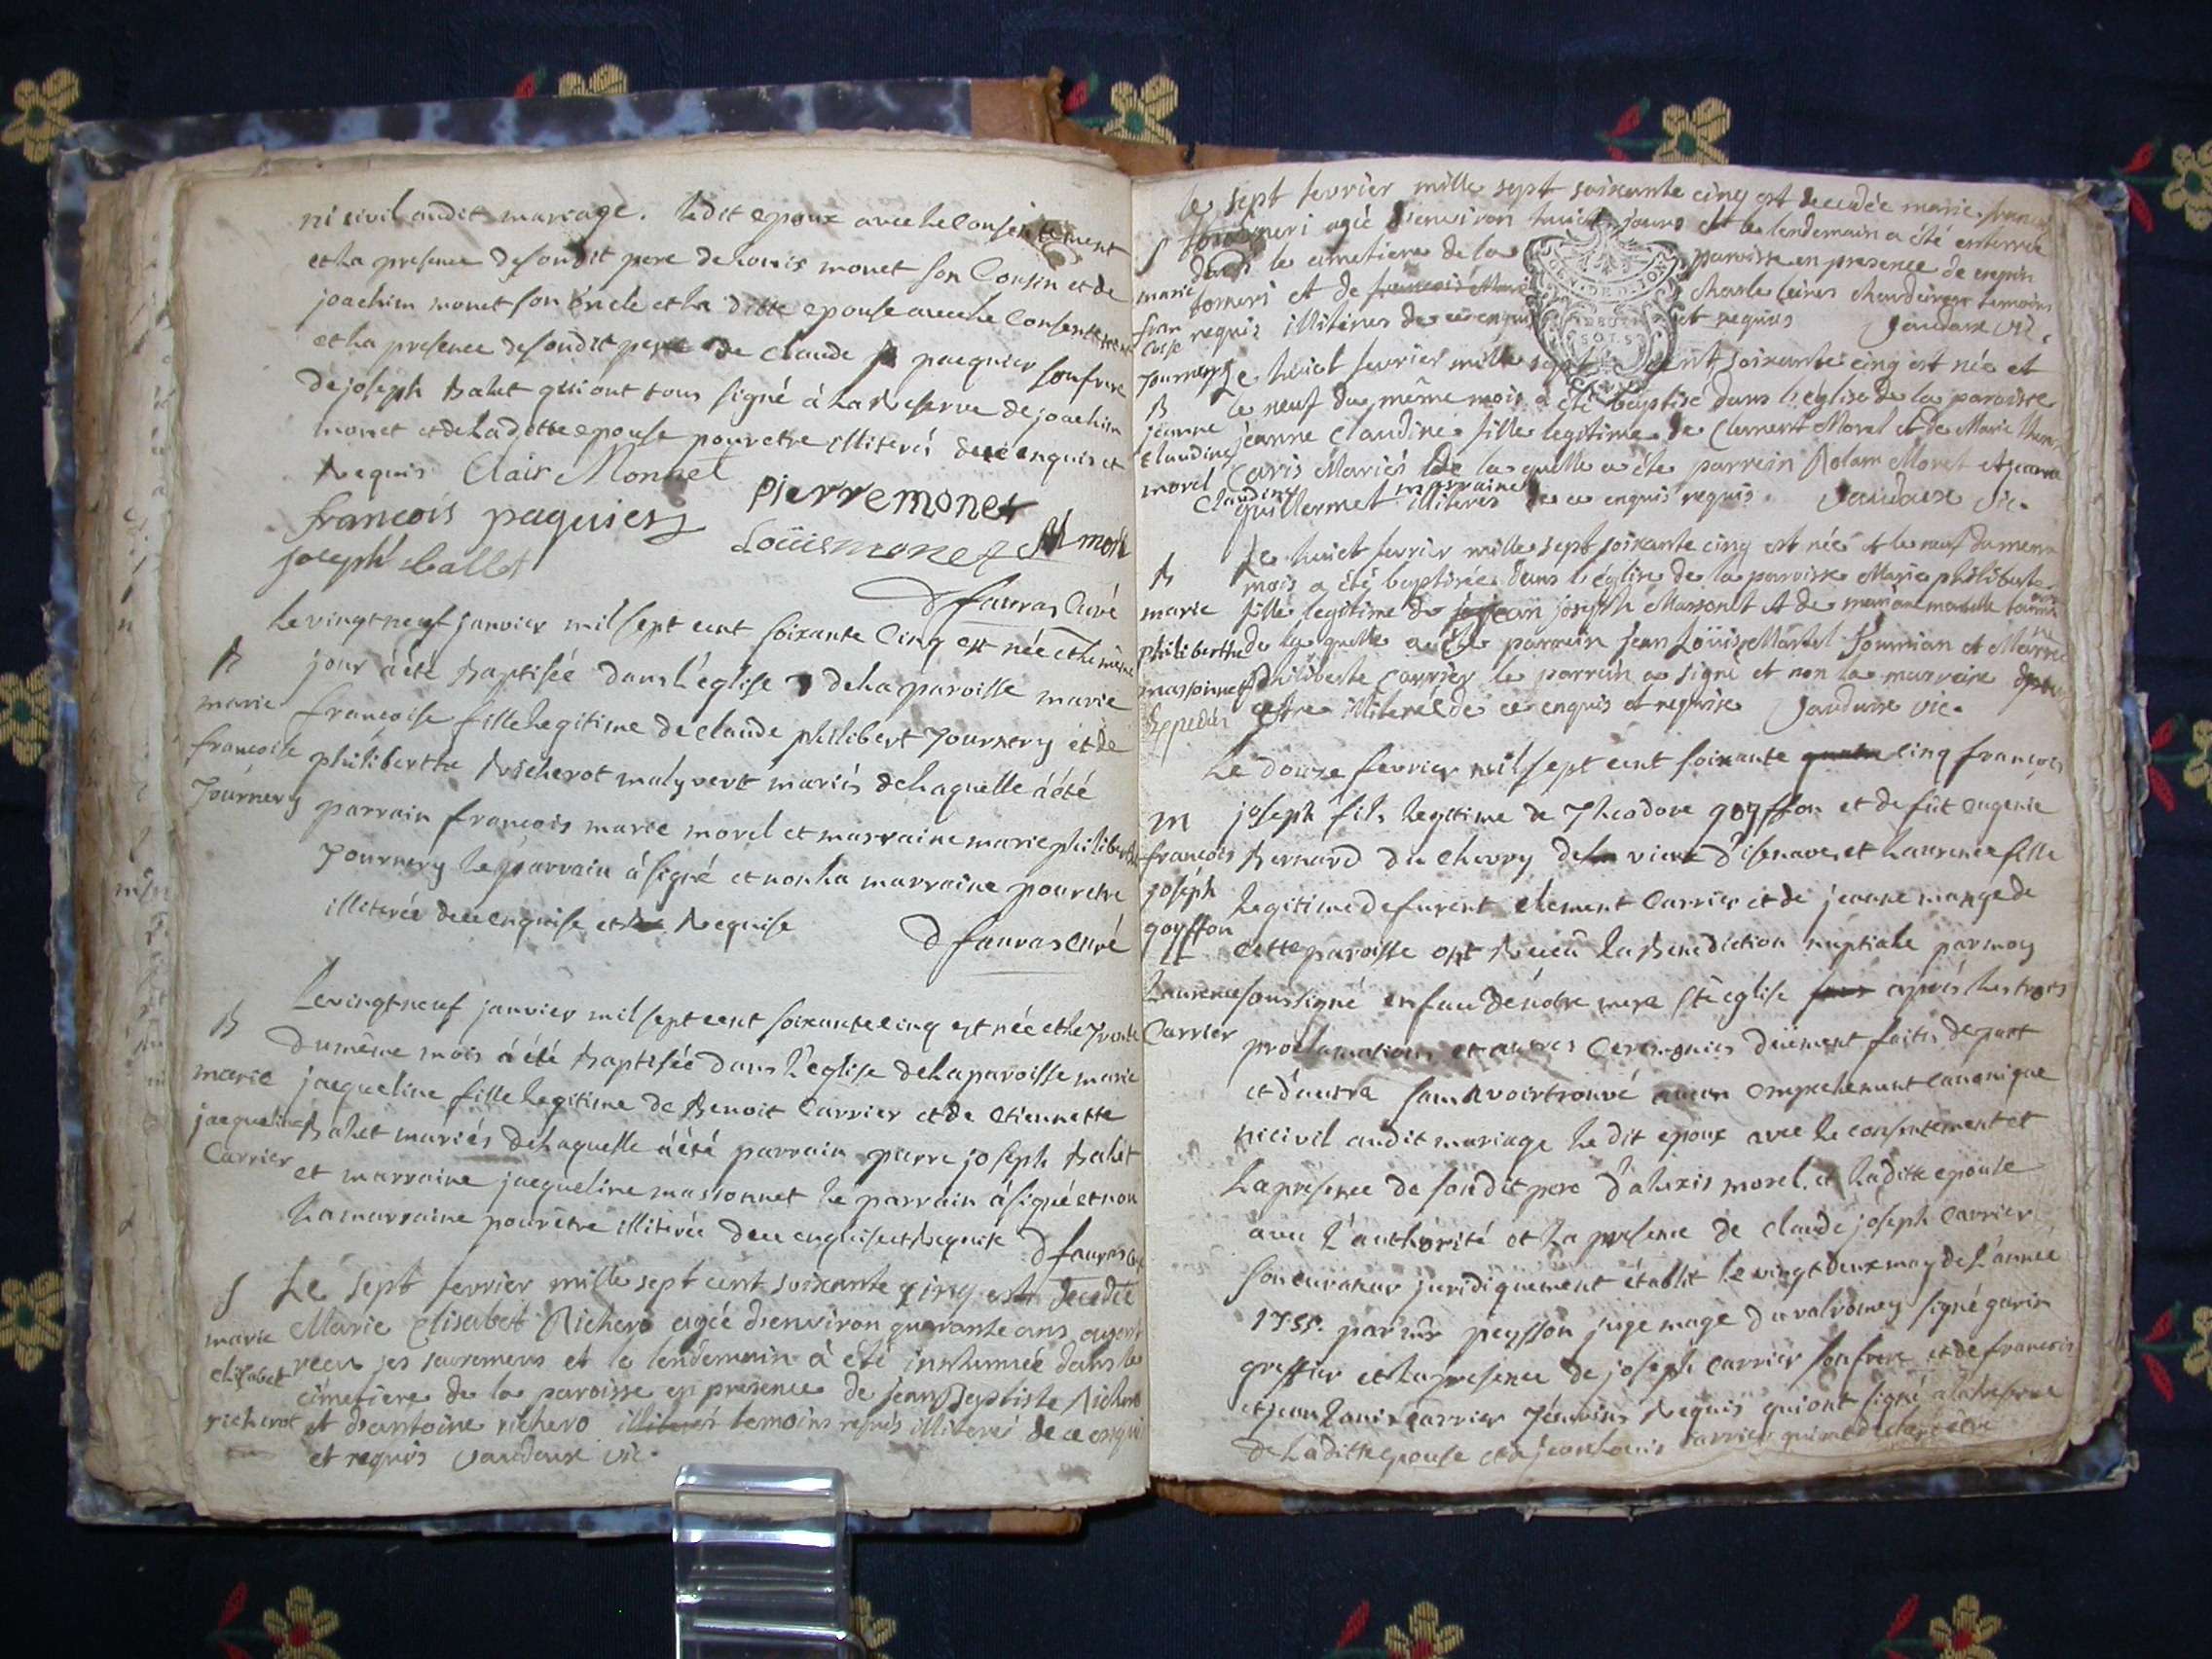 ni civil audit mariage. ledit epoux avec le consentement
et la presence de son dit pere de Louis monet son Cousin et de
joachim monet son oncle et la ditte epouse avec le consentement
et la presence de son dit pere de claude paequier son frere
de joseph Balet qui ont tous signé à la Reserve de joachim
monet et de la ditte epouse pour etre illiterés de ce enquis et
Requis Clair Monnet
françois paquier pierre monet
joseph ballet Loüis monet
D favras Curé
Le vingt neuf janvier mil sept cent soixante Cinq est née et le même
B jour à été Baptisée dans l'église de la paroisse marie
marie françoise fille legitime de claude philibert Journery et de
francoise philiberthe Richerot malyvert mariés de laquelle à été
Journery parrain francois marie morel et marraine marie philiberthe
Journery le parrain à signé et non la marraine pour etre
illiterée de ce enquise et Requise D favras curé
Le vingt neuf janvier mil sept cent soixante cinq est née et le Trente
B du même mois à été Baptisée dans l'eglise de la paroisse marie
marie jacqueline fille legitime de Benoit Carrier et de etiennette
jacqueline Balet mariés de laquelle à été parrain pierre joseph Balet
Carrier et marraine jacqueline massonnet le parrain à signé et non
la marraine pour être illiterée de ce enquise et Requise D favras curé
S Le sept fevrier mille sept cent soixante cinq est decedée
marie Marie Elisabet Richero agée d'environ quarante ans ayant
elisabet recu ses sacremens et le lendemain à été inhumée dans le
cimetiere de la paroisse en presence de jean Baptiste Richero
richerot et d'antoine richero illiterés temoins requis illiterés de ce enqui
et requis vaudaux vic.
le sept fevrier mille sept soixante cinq est decedée marie francoi
S agée d'environ huict jours et le lendemain a été enterrée
marie dans le cimetiere de la paroisse en presence de
fran torneri et de francois Charle temoins
coise requis illiteres de ce enquis et requis vaudaux vic.
Journery Le huict fevrier mille sept cent soixante cinq est née et
B le neuf du même mois a été baptisé dans l'église de la paroisse
jeanne jeanne Claudine fille legitime de Clement Morel et de Marie
claudine Caris Mariés de laquelle a été parrein Morel et jeanne
morel Claudine guillermet marraine illiteres de ce enquis requis. vaudaux vic.
Le huict fevrier mille sept soixante cinq est née et le neuf du meme
B mois a été baptisée dans l'église de la paroisse Marie philiberte
marie fille legitime de jean joseph Massonet et de
philiberthe de laquelle a été parrein jean Loüis Martel et Marie
massonnet philiberte Carrier le parrein a signé et non la marraine
Expedié estre illiterée de ce enquis et requise vaudaux vic.
Le douze fevrier mil sept cent soixante quatre cinq françois
M joseph fils legitime de Theodore goyffon et de fut eugenie
francois Bernard du chevry de et Laurence fille
joseph legitime de furent Clement Carrier et de jeanne mange de
goyffon cette paroisse ont Receu la Benediction nuptiale par moy
Laurence soussigné en face de nôtre mere Ste eglise après les trois
Carrier proclamations et autres Ceremonies düement faites de part
et d'autre sans avoir trouvé aucun empechement canonique
ni civil audit mariage le dit epoux avec le consentement et
la presence de son dit pere d'alexis morel, et la ditte epouse
avec l'authorité et la presence de claude joseph Carrier
son curateur juridiquement établit le vingt deux may de l'année
1755. par mr peysson juge mage du valromey signé garin
greffier et la presence de joseph Carrier son frere et de francois
et jean Louis Carrier Témoins Requis qui ont signé a la reserve
de la ditte epouse et de jean Louis Carrier